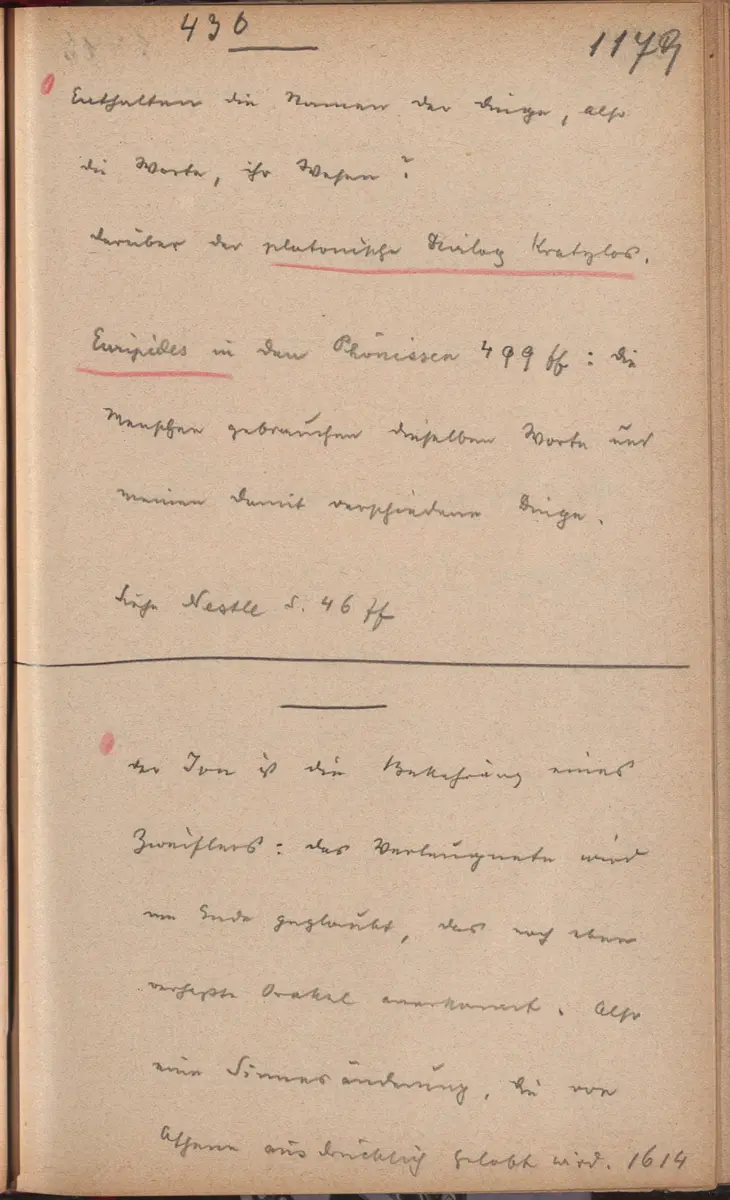 436
1179
Enthalten die Namen der Dinge, also
die Worte, ihr Wesen?
darüber der platonische Dialog Kratylos.
Euripides in den Phönissen 499 ff: die
Menschen gebrauchen dieselben Worte und
meinen damit verschiedene Dinge.
Siehe Nestle S. 46 ff
der Ion ist die Bekehrung eines
Zweiflers: das Verleugnete wird
am Ende geglaubt, das noch eben
verhaßte Orakel anerkannt. Also
eine Sinnesänderung, die von
Athene ausdrücklich gelobt wird. 1614